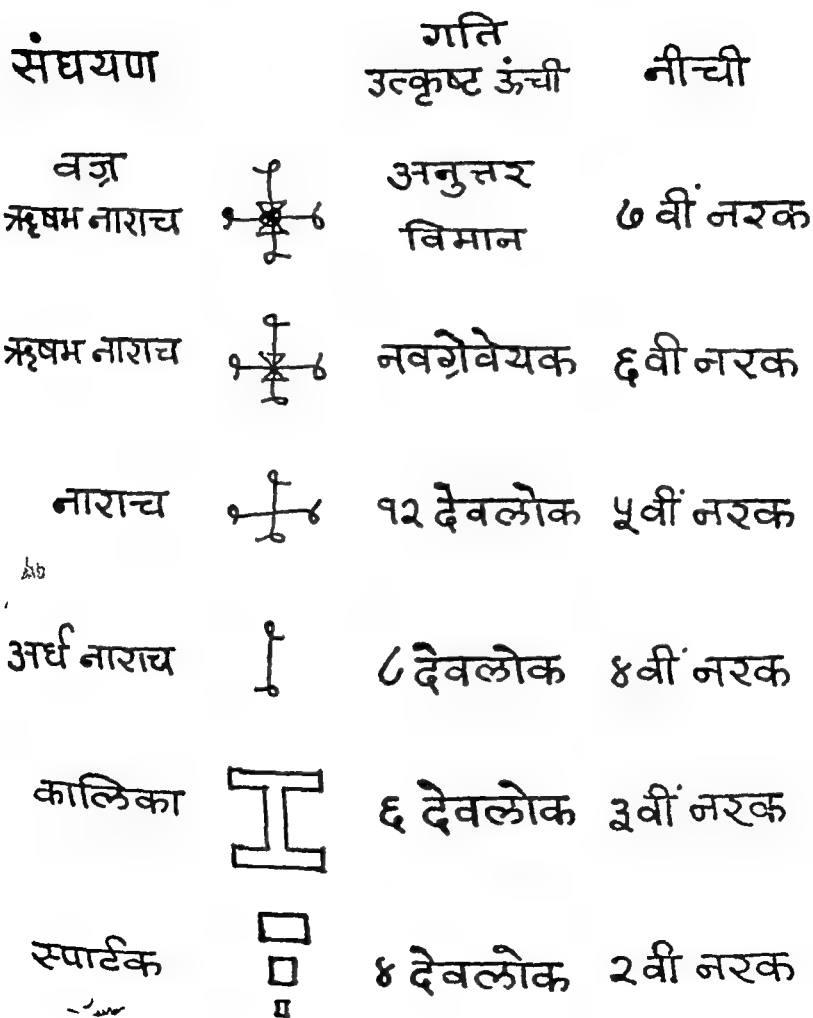 संघयण
गति
उत्कृष्ट ऊंची
नीची
वज्र
ऋषभ नाराच
अनुत्तर
विमान
७ वीं नरक
ऋषभ नाराच
नवग्रेवेयक
६वी नरक
नाराच
१२ देवलोक
५वीं नरक
अर्ध नाराच
८ देवलोक
४वीं नरक
कालिका
६ देवलोक
३वीं नरक
स्पार्टक
४ देवलोक
२वी नरक